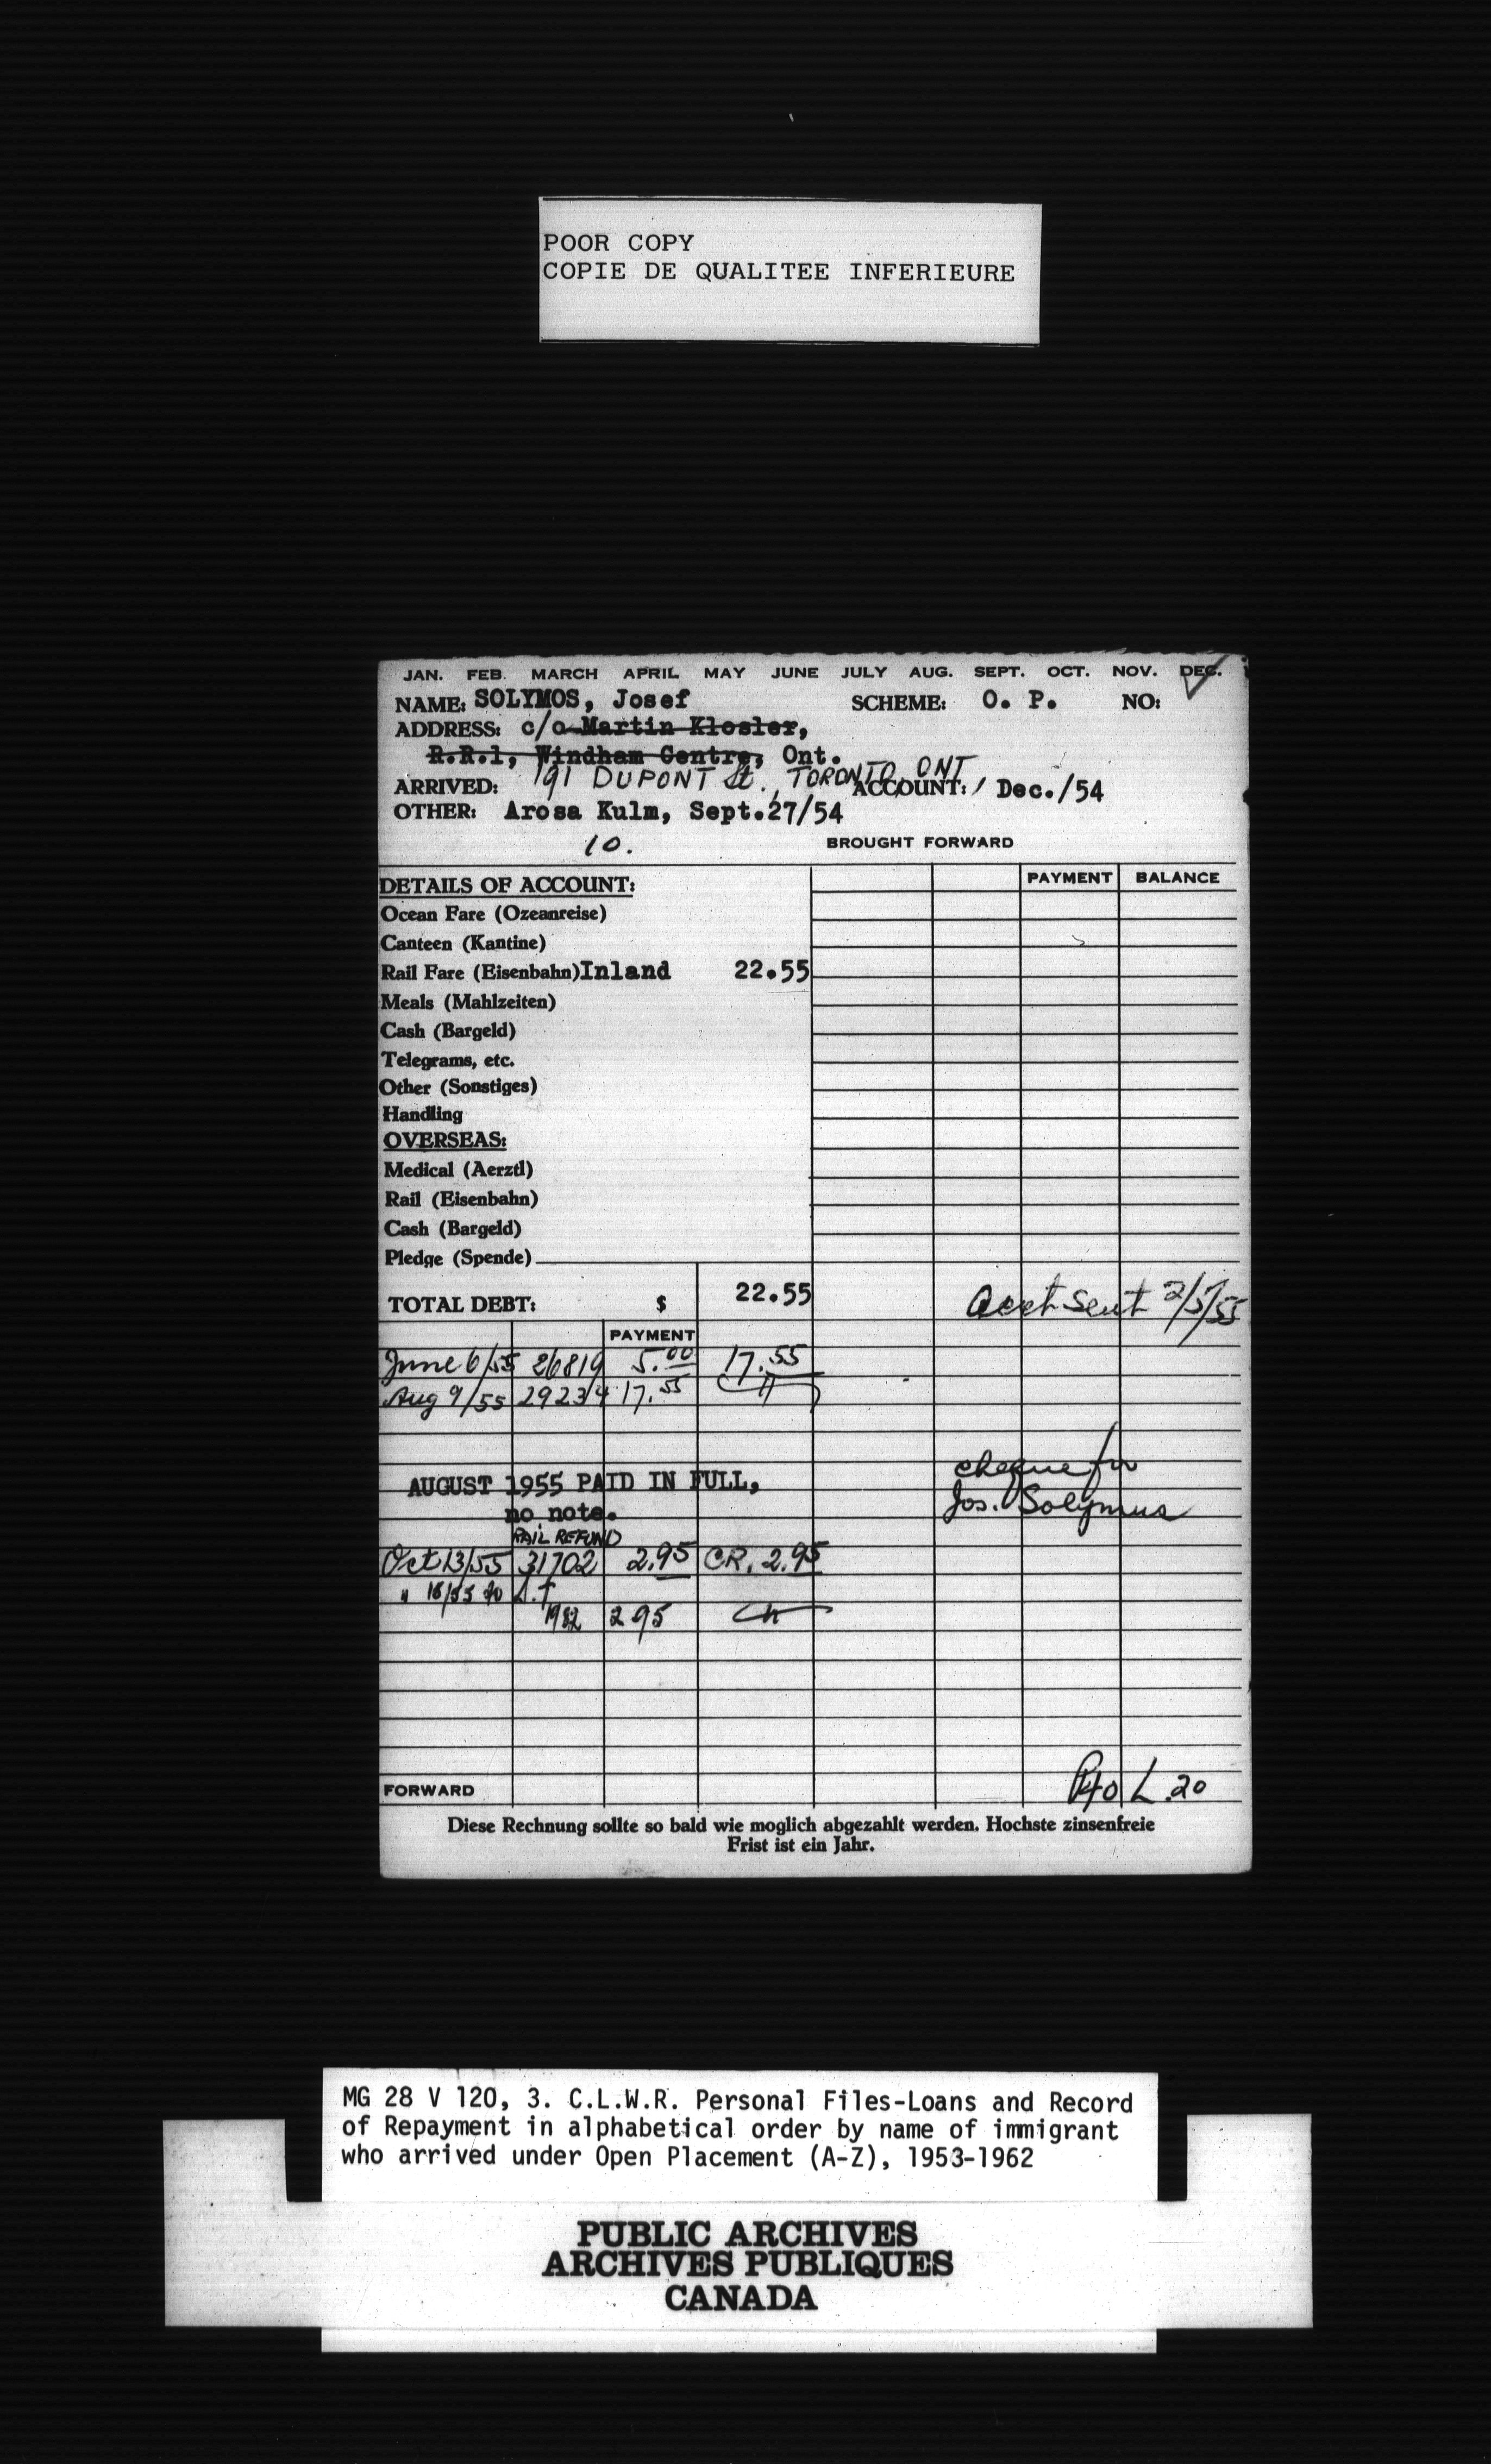 POOR COPY
COPIE DE QUALITEE INFERIEURE
JAN. FEB. MARCH APRIL MAY JUNE JULY AUG. SEPT. OCT. NOV. DEC.
NAME: SOLYMOS, Josef SCHEME: O. P. NO:
ADDRESS: c/o Martin Klosler,
R.R.1, Windham Centre, Ont.
191 DUPONT St., TORONTO, ONT
ARRIVED: ACCOUNT: Dec./54
OTHER: Arosa Kulm, Sept.27/54
10.
BROUGHT FORWARD
DETAILS OF ACCOUNT: PAYMENT BALANCE
Ocean Fare (Ozeanreise)
Canteen (Kantine)
Rail Fare (Eisenbahn)Inland 22.55
Meals (Mahlzeiten)
Cash (Bargeld)
Telegrams, etc.
Other (Sonstiges)
Handling
OVERSEAS:
Medical (Aerztl)
Rail (Eisenbahn)
Cash (Bargeld)
Pledge (Spende)
TOTAL DEBT: $ 22.55 Acct sent 2/5/55
PAYMENT
June 6/55 26819 5.00 17.55
Aug 9/55 29234 17.55
cheque fr
AUGUST 1955 PAID IN FULL,
Jos. Solymus
no note.
RAIL REFUND
Oct 13/55 31702 2.95 CR. 2.95
" 18/55
1982 2 95
FORWARD L.20
Diese Rechnung sollte so bald wie moglich abgezahlt werden. Hochste zinsenfreie
Frist ist ein Jahr.
MG 28 V 120, 3. C.L.W.R. Personal Files-Loans and Record
of Repayment in alphabetical order by name of immigrant
who arrived under Open Placement (A-Z), 1953-1962
PUBLIC ARCHIVES
ARCHIVES PUBLIQUES
CANADA